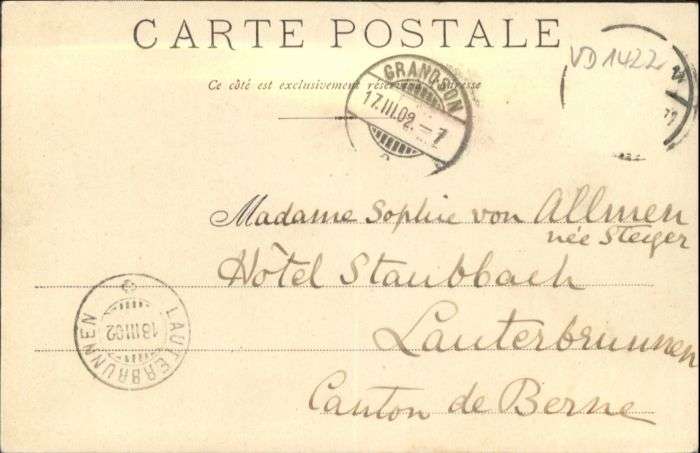 CARTE POSTALE
VD 1422
Ce côté est exclusivement réservé Adresse
GRANDSON
17.III.02.-7
Madame Sophie von Allmen
née Steiger
Hôtel Staubbach
Lauterbrunnen
Canton de Berne
LAUTERBRUNNEN
18.III.02